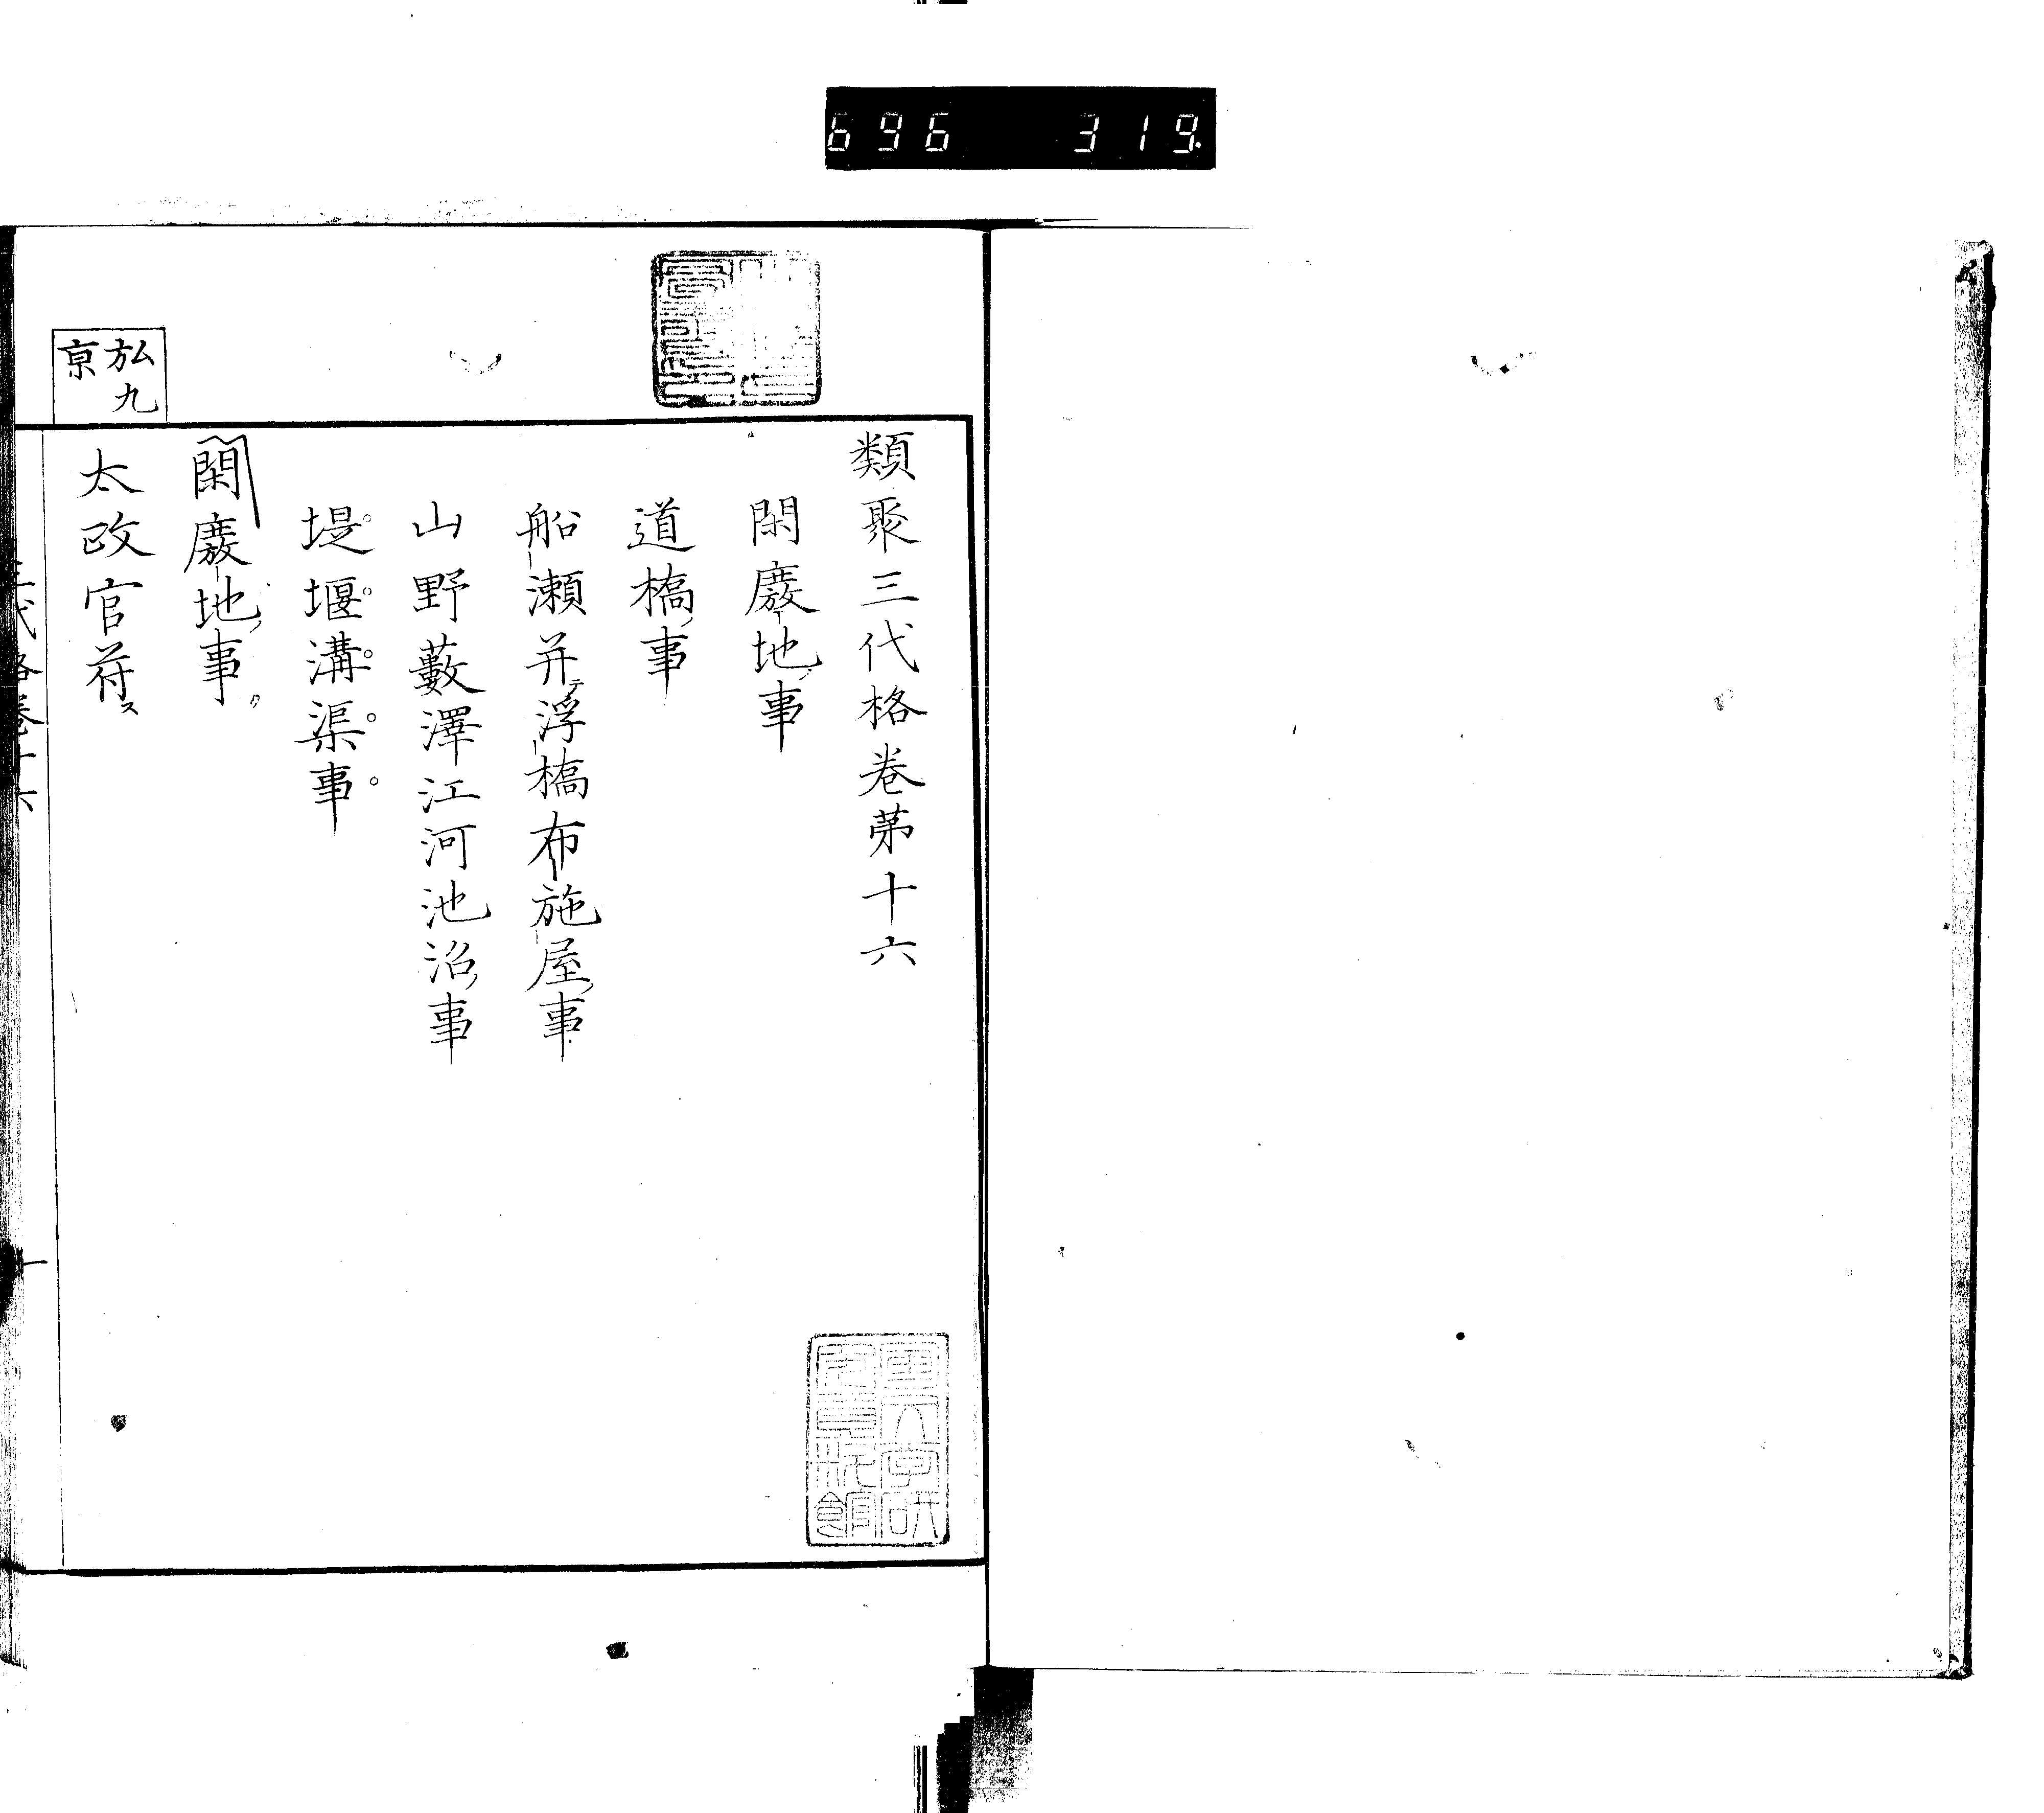 696 319
類聚三代格卷第十六
閑廢地事
道橋事
船瀬并浮橋布施屋事
山野藪澤江河池沼事
堤堰溝渠事
閑廢地事
弘九
京
太政官符
三代格卷十六
一